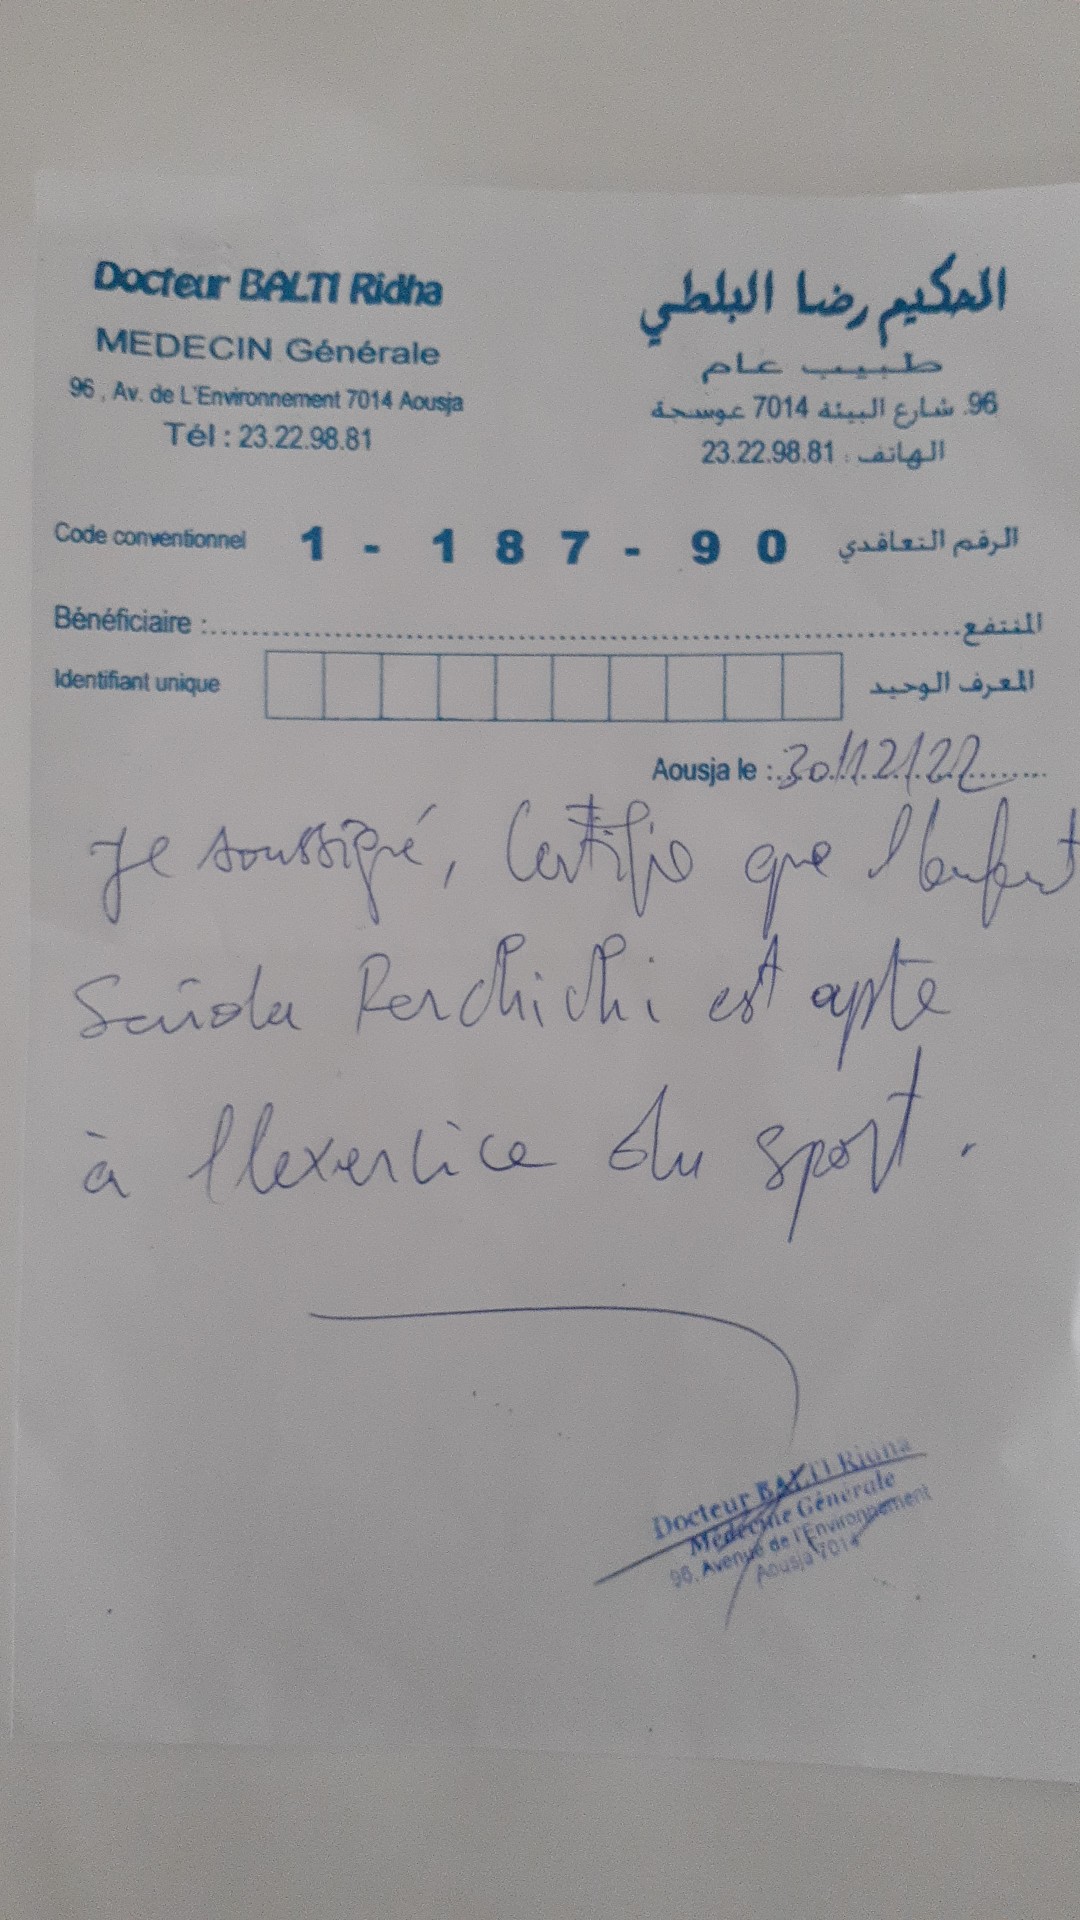 Docteur BALTI Ridha
الحكيم رضا البلطي
MEDECIN Générale
طبيب عام
96 , Av. de L'Environnement 7014 Aousja
96. شارع البيئة 7014 عوسجة
Tél : 23.22.98.81
الهاتف : 23.22.98.81
Code conventionnel 1 - 187 - 90 الرقم التعاقدي
Bénéficiaire : المنتفع
Identifiant unique المعرف الوحيد
Aousja le : 30/12/22
Je soussigné, Certifie que l'enfant
Rerchichi est apte
à l'exercice du sport.
Docteur BALTI Ridha
Médecine Générale
96, Avenue de l'Environnement
Aousja 7014